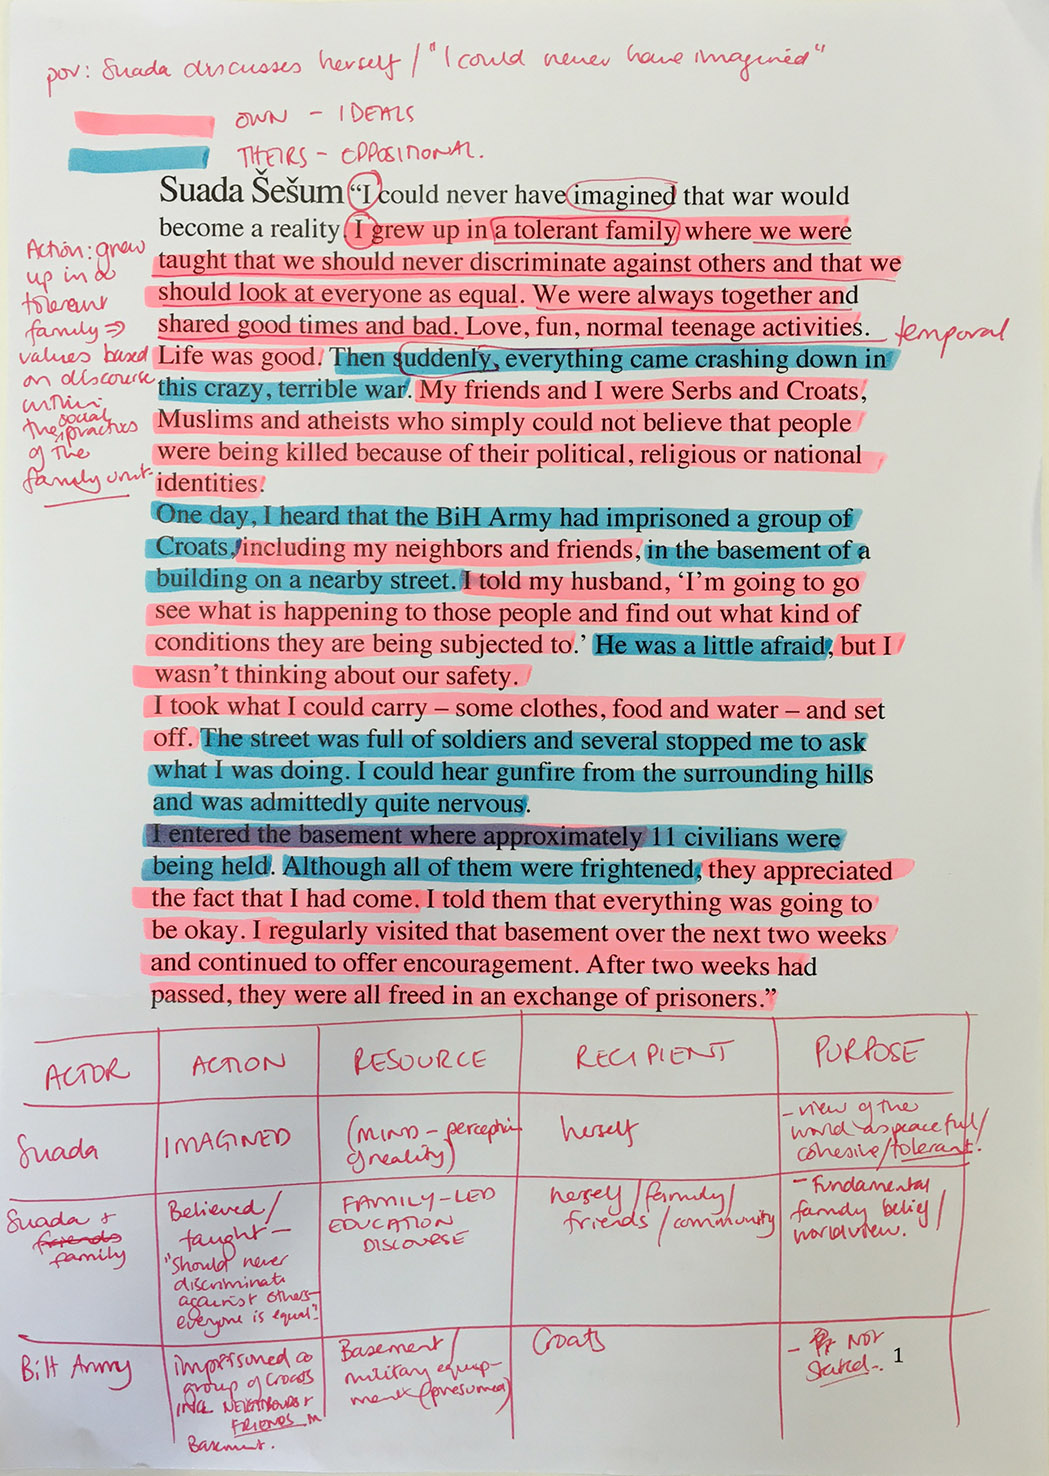 pov: Suada discusses herself / "I could never have imagined"
OWN - IDEALS
THEIRS - OPPOSITIONAL.
Suada Šešum “I could never have imagined that war would
become a reality. I grew up in a tolerant family where we were
taught that we should never discriminate against others and that we
should look at everyone as equal. We were always together and
shared good times and bad. Love, fun, normal teenage activities.
Life was good. Then suddenly, everything came crashing down in
this crazy, terrible war. My friends and I were Serbs and Croats,
Muslims and atheists who simply could not believe that people
were being killed because of their political, religious or national
identities.
One day, I heard that the BiH Army had imprisoned a group of
Croats, including my neighbors and friends, in the basement of a
building on a nearby street. I told my husband, ‘I’m going to go
see what is happening to those people and find out what kind of
conditions they are being subjected to.’ He was a little afraid, but I
wasn’t thinking about our safety.
I took what I could carry – some clothes, food and water – and set
off. The street was full of soldiers and several stopped me to ask
what I was doing. I could hear gunfire from the surrounding hills
and was admittedly quite nervous.
I entered the basement where approximately 11 civilians were
being held. Although all of them were frightened, they appreciated
the fact that I had come. I told them that everything was going to
be okay. I regularly visited that basement over the next two weeks
and continued to offer encouragement. After two weeks had
passed, they were all freed in an exchange of prisoners.”
Action: grew
up in a
tolerant
family ⇒
values based
on discourse
within
the social practices
of the
family unit.
temporal
ACTOR
ACTION
RESOURCE
RECIPIENT
PURPOSE
Suada
IMAGINED
(MIND - perception
of reality)
herself
- view of the
world as peaceful/
cohesive/tolerant.
Suada +
friends
family
Believed/
taught -
"should never
discriminate
against others -
everyone is equal".
FAMILY-LED
EDUCATION
DISCOURSE
herself/family/
friends/community
- Fundamental
family belief/
worldview.
BiH Army
imprisoned a
group of Croats
INCL NEIGHBOURS +
FRIENDS in
Basement.
Basement/
military equip-
ment (presumed)
Croats
- Not
stated.
1